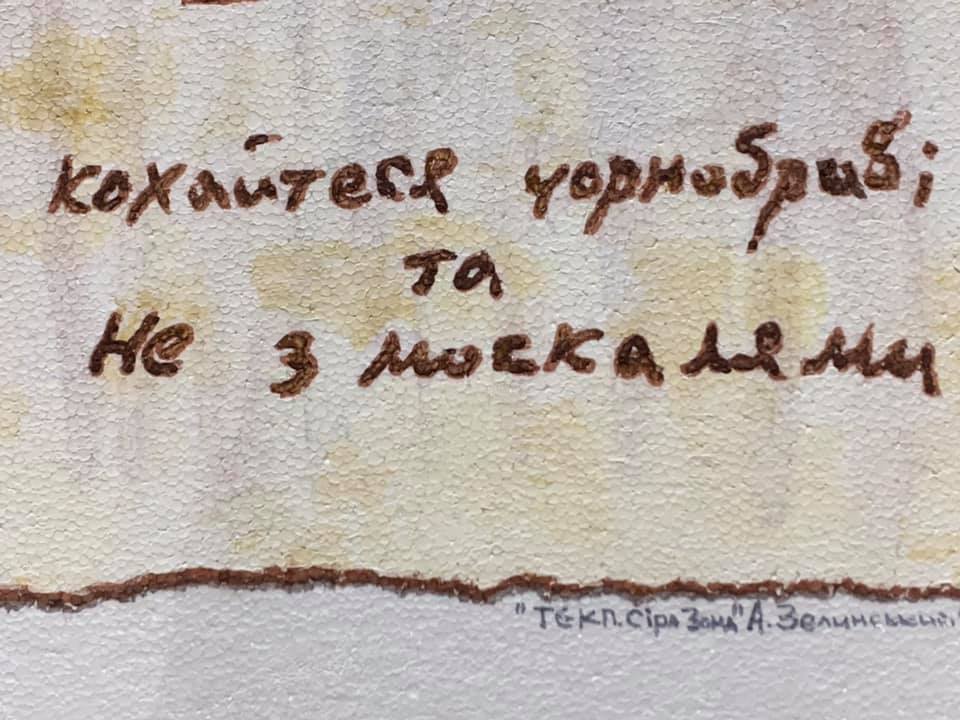 кохайтеся чорнобриві
та
Не з москалями
"ТЕКП. Сіра Зона" А. Зелинський